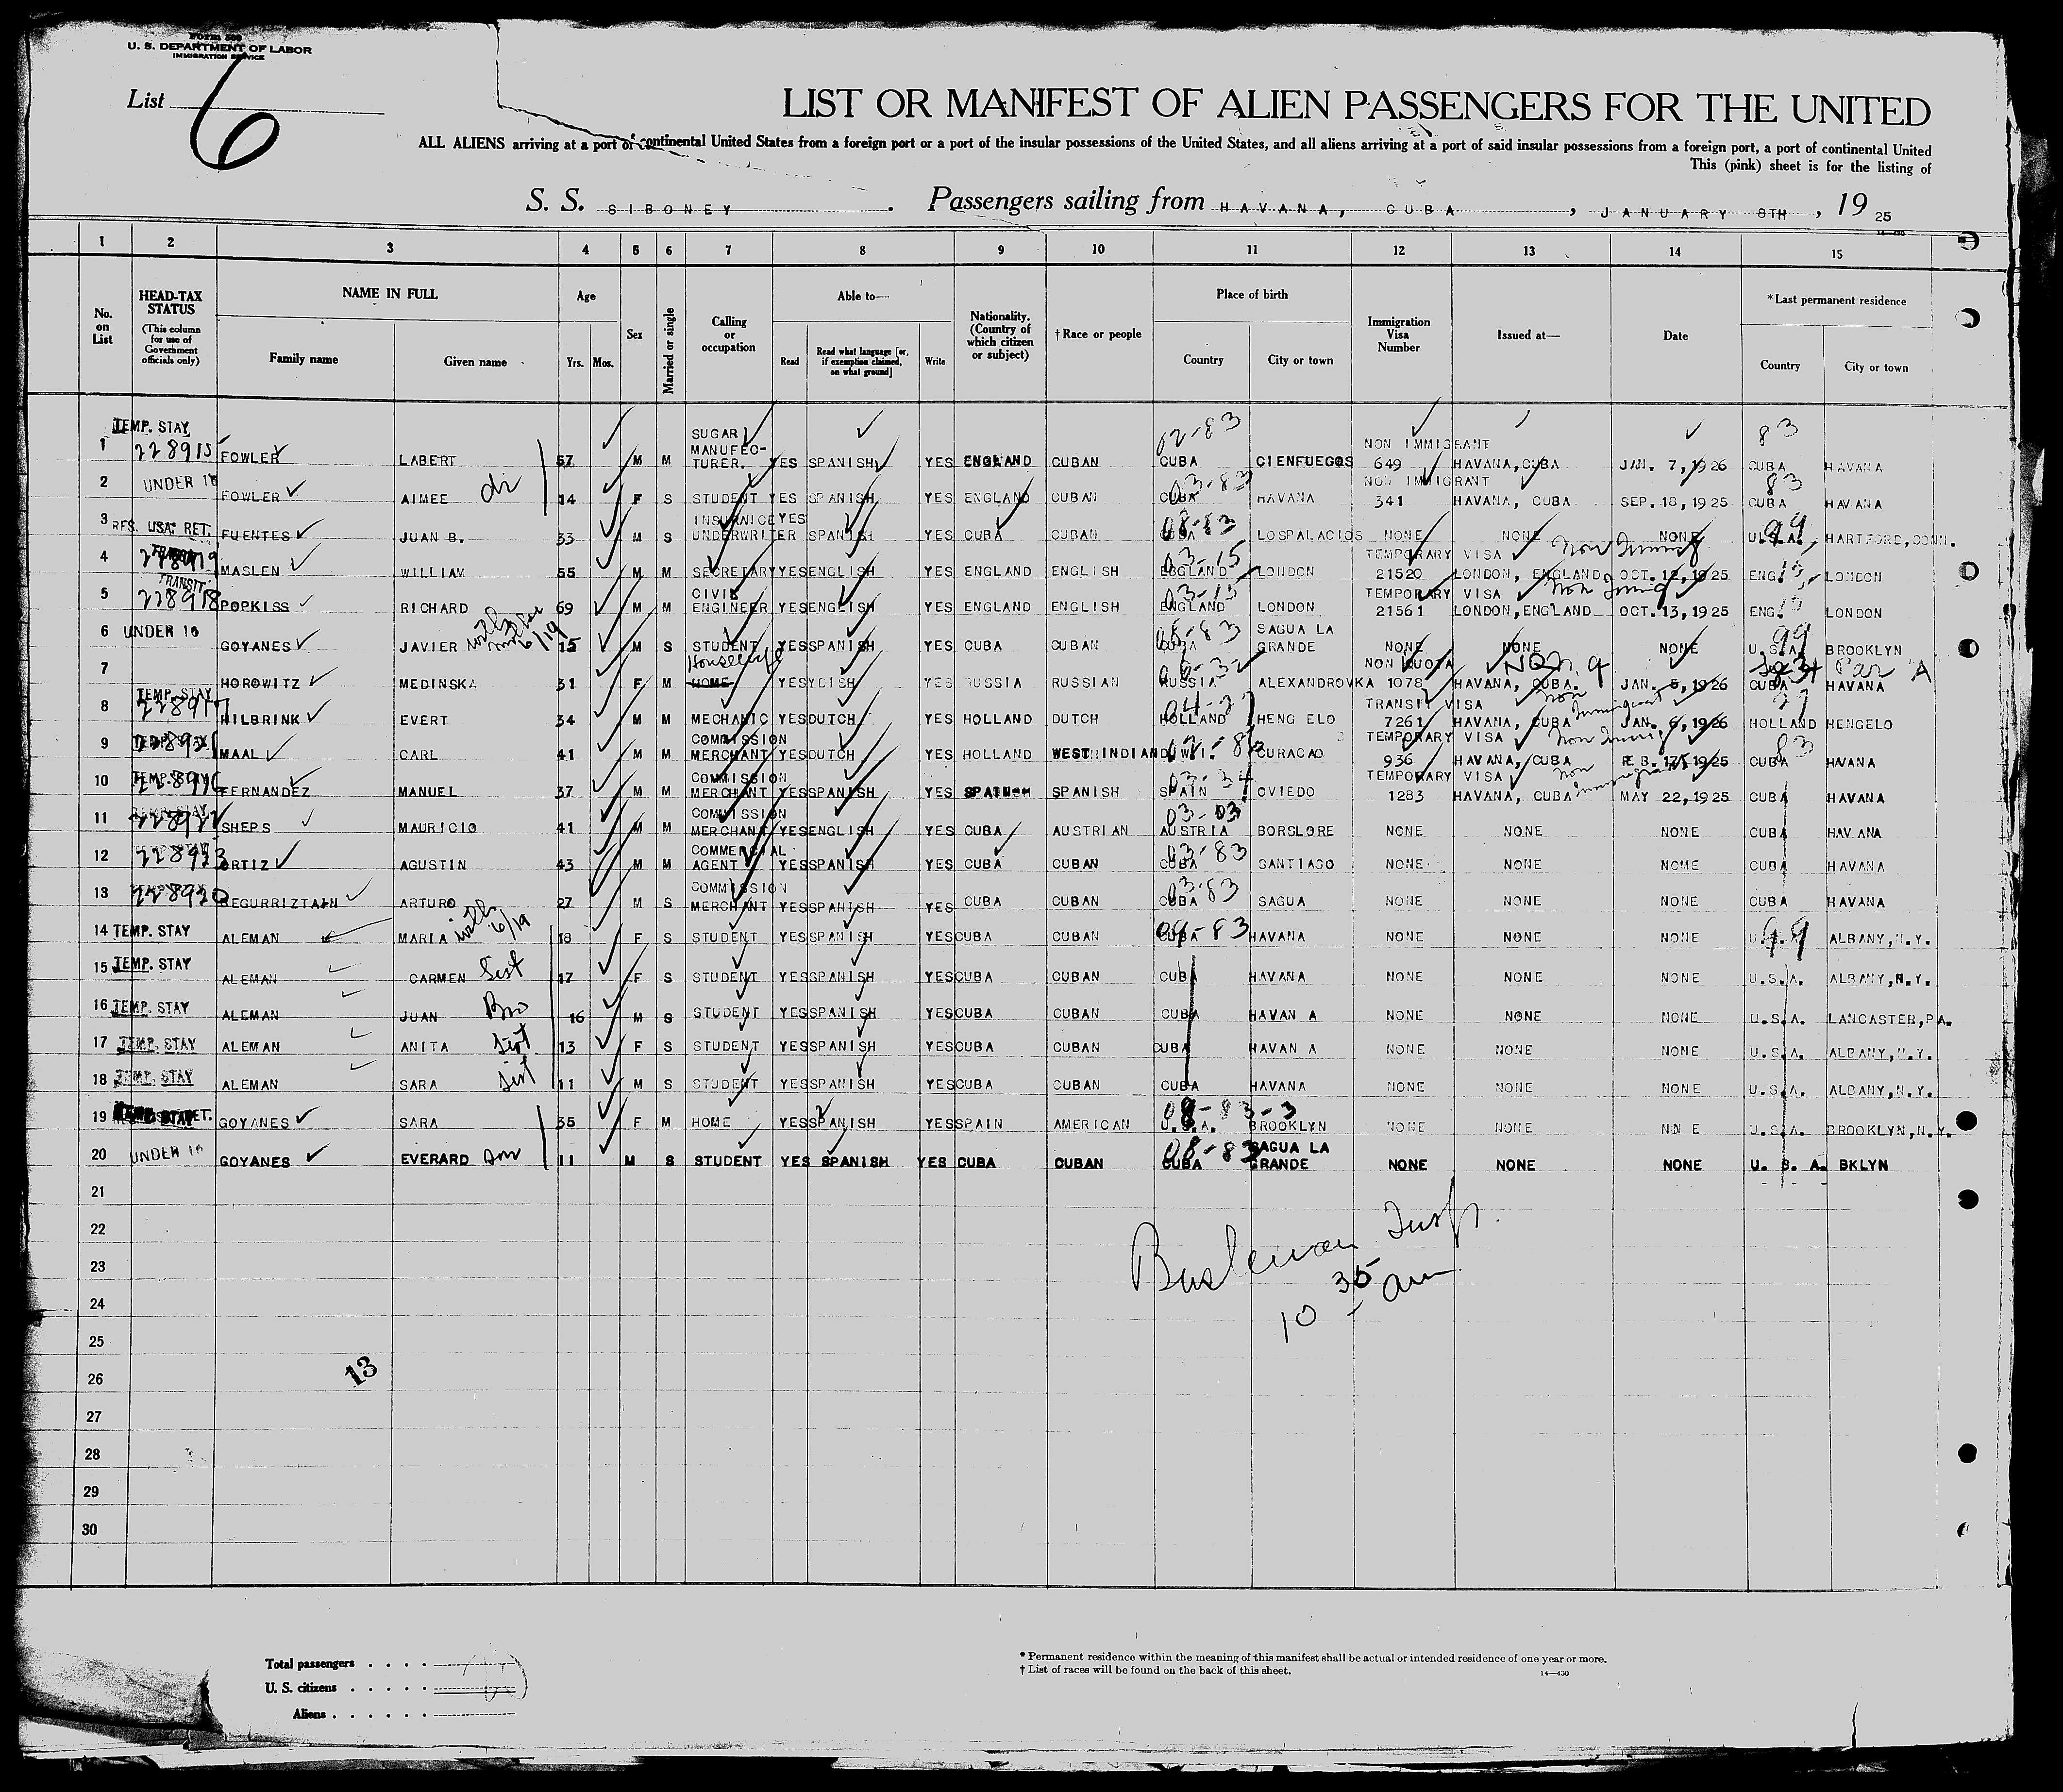 Form 500
U. S. DEPARTMENT OF LABOR
IMMIGRATION SERVICE
List 6
LIST OR MANIFEST OF ALIEN PASSENGERS FOR THE UNITED
ALL ALIENS arriving at a port of continental United States from a foreign port or a port of the insular possessions of the United States, and all aliens arriving at a port of said insular possessions from a foreign port, a port of continental United
This (pink) sheet is for the listing of
S. S. SIBONEY. Passengers sailing from HAVANA, CUBA, JANUARY 8TH, 19 25
1 2 3 4 5 6 7 8 9 10 11 12 13 14 15
No. on List
HEAD-TAX STATUS (This column for use of Government officials only)
NAME IN FULL Family name Given name
Age Yrs. Mos.
Sex
Married or single
Calling or occupation
Able to— Read Read what language [or, if exemption claimed, on what ground] Write
Nationality. (Country of which citizen or subject)
† Race or people
Place of birth Country City or town
Immigration Visa Number
Issued at—
Date
*Last permanent residence Country City or town
1 TEMP. STAY 228915 FOWLER LABERT 57 M M SUGAR MANUFEC-TURER. YES SPANISH YES ENGLAND CUBAN 02-83 CUBA CIENFUEGOS NON IMMIGRANT 649 HAVANA, CUBA JAN. 7, 1926 83 CUBA HAVANA
2 UNDER 16 FOWLER AIMEE 14 F S STUDENT YES SPANISH YES ENGLAND CUBAN 03-83 CUBA HAVANA NON IMMIGRANT 341 HAVANA, CUBA SEP. 18, 1925 83 CUBA HAVANA
3 RES. USA. RET. FUENTES JUAN B. 33 M M INSURNICE UNDERWRITER YES SPANISH YES CUBA CUBAN 08-83 CUBA LOSPALACIOS NONE NONE NONE 99 U.S.A. HARTFORD, CONN.
4 MASLEN WILLIAM 55 M M SECRETARY YES ENGLISH YES ENGLAND ENGLISH 03-15 ENGLAND LONDON TEMPORARY VISA 21520 LONDON, ENGLAND OCT. 12, 1925 ENG. LONDON
5 TRANSIT 228918 POPKISS RICHARD 69 M M CIVIL ENGINEER YES ENGLISH YES ENGLAND ENGLISH 03-15 ENGLAND LONDON TEMPORARY VISA 21561 LONDON, ENGLAND OCT. 13, 1925 ENG. LONDON
6 UNDER 16 GOYANES JAVIER with mother 6/19 15 M S STUDENT YES SPANISH YES CUBA CUBAN 08-83 CUBA SAGUA LA GRANDE NONE NONE NONE 99 U.S.A. BROOKLYN
7 HOROWITZ MEDINSKA 31 F M HOME Housewife YES YDISH YES RUSSIA RUSSIAN RUSSIA ALEXANDROVKA NON QUOTA 1078 HAVANA, CUBA. JAN. 5, 1926 CUBA HAVANA
8 TEMP. STAY 228917 HILBRINK EVERT 34 M M MECHANIC YES DUTCH YES HOLLAND DUTCH 04-27 HOLLAND HENG ELO TRANSIT VISA 7261 HAVANA, CUBA JAN. 6, 1926 27 HOLLAND HENGELO
9 MAAL CARL 41 M M COMMISSION MERCHANT YES DUTCH YES HOLLAND WEST INDIAN D.W.I. CURACAO TEMPORARY VISA 936 HAVANA, CUBA FEB. 17, 1925 83 CUBA HAVANA
10 TEMP. STAY 228916 FERNANDEZ MANUEL 37 M M COMMISSION MERCHANT YES SPANISH YES SPANISH SPANISH 03-34 SPAIN OVIEDO TEMPORARY VISA 1283 HAVANA, CUBA MAY 22, 1925 CUBA HAVANA
11 SHEPS MAURICIO 41 M M COMMISSION MERCHANT YES ENGLISH YES CUBA AUSTRIAN 03-03 AUSTRIA BORSLORE NONE NONE NONE CUBA HAVANA
12 228923 ORTIZ AGUSTIN 43 M M COMMERCIAL AGENT YES SPANISH YES CUBA CUBAN 03-83 CUBA SANTIAGO NONE NONE NOME CUBA HAVANA
13 228920 BEGURRIZTAIN ARTURO 27 M S COMMISSION MERCHANT YES SPANISH YES CUBA CUBAN 03-83 CUBA SAGUA NONE NONE NONE CUBA HAVANA
14 TEMP. STAY ALEMAN MARIA with 6/19 18 F S STUDENT YES SPANISH YES CUBA CUBAN 09-83 CUBA HAVANA NONE NONE NONE 99 U.S.A. ALBANY, N.Y.
15 TEMP. STAY ALEMAN CARMEN Sist 17 F S STUDENT YES SPANISH YES CUBA CUBAN CUBA HAVANA NONE NONE NONE U.S.A. ALBANY, N.Y.
16 TEMP. STAY ALEMAN JUAN Bro 16 M S STUDENT YES SPANISH YES CUBA CUBAN CUBA HAVAN A NONE NONE NONE U.S.A. LANCASTER, PA.
17 TEMP. STAY ALEMAN ANITA Sist 13 F S STUDENT YES SPANISH YES CUBA CUBAN CUBA HAVAN A NONE NONE NONE U.S.A. ALBANY, N.Y.
18 TEMP. STAY ALEMAN SARA Sist 11 M S STUDENT YES SPANISH YES CUBA CUBAN CUBA HAVANA NONE NONE NONE U.S.A. ALBANY, N.Y.
19 GOYANES SARA 35 F M HOME YES SPANISH YES SPAIN AMERICAN 08-83-3 U.S.A. BROOKLYN NONE NONE NONE U.S.A. BROOKLYN, N.Y.
20 UNDER 16 GOYANES EVERARD son 11 M S STUDENT YES SPANISH YES CUBA CUBAN 08-83 CUBA SAGUA LA GRANDE NONE NONE NONE U. S. A. BKLYN
21
22
23
24
25
26
27
28
29
30
Insp.
10 35 am
13
Total passengers . . . .
U. S. citizens . . . . .
Aliens . . . . . .
* Permanent residence within the meaning of this manifest shall be actual or intended residence of one year or more.
† List of races will be found on the back of this sheet.
14—430